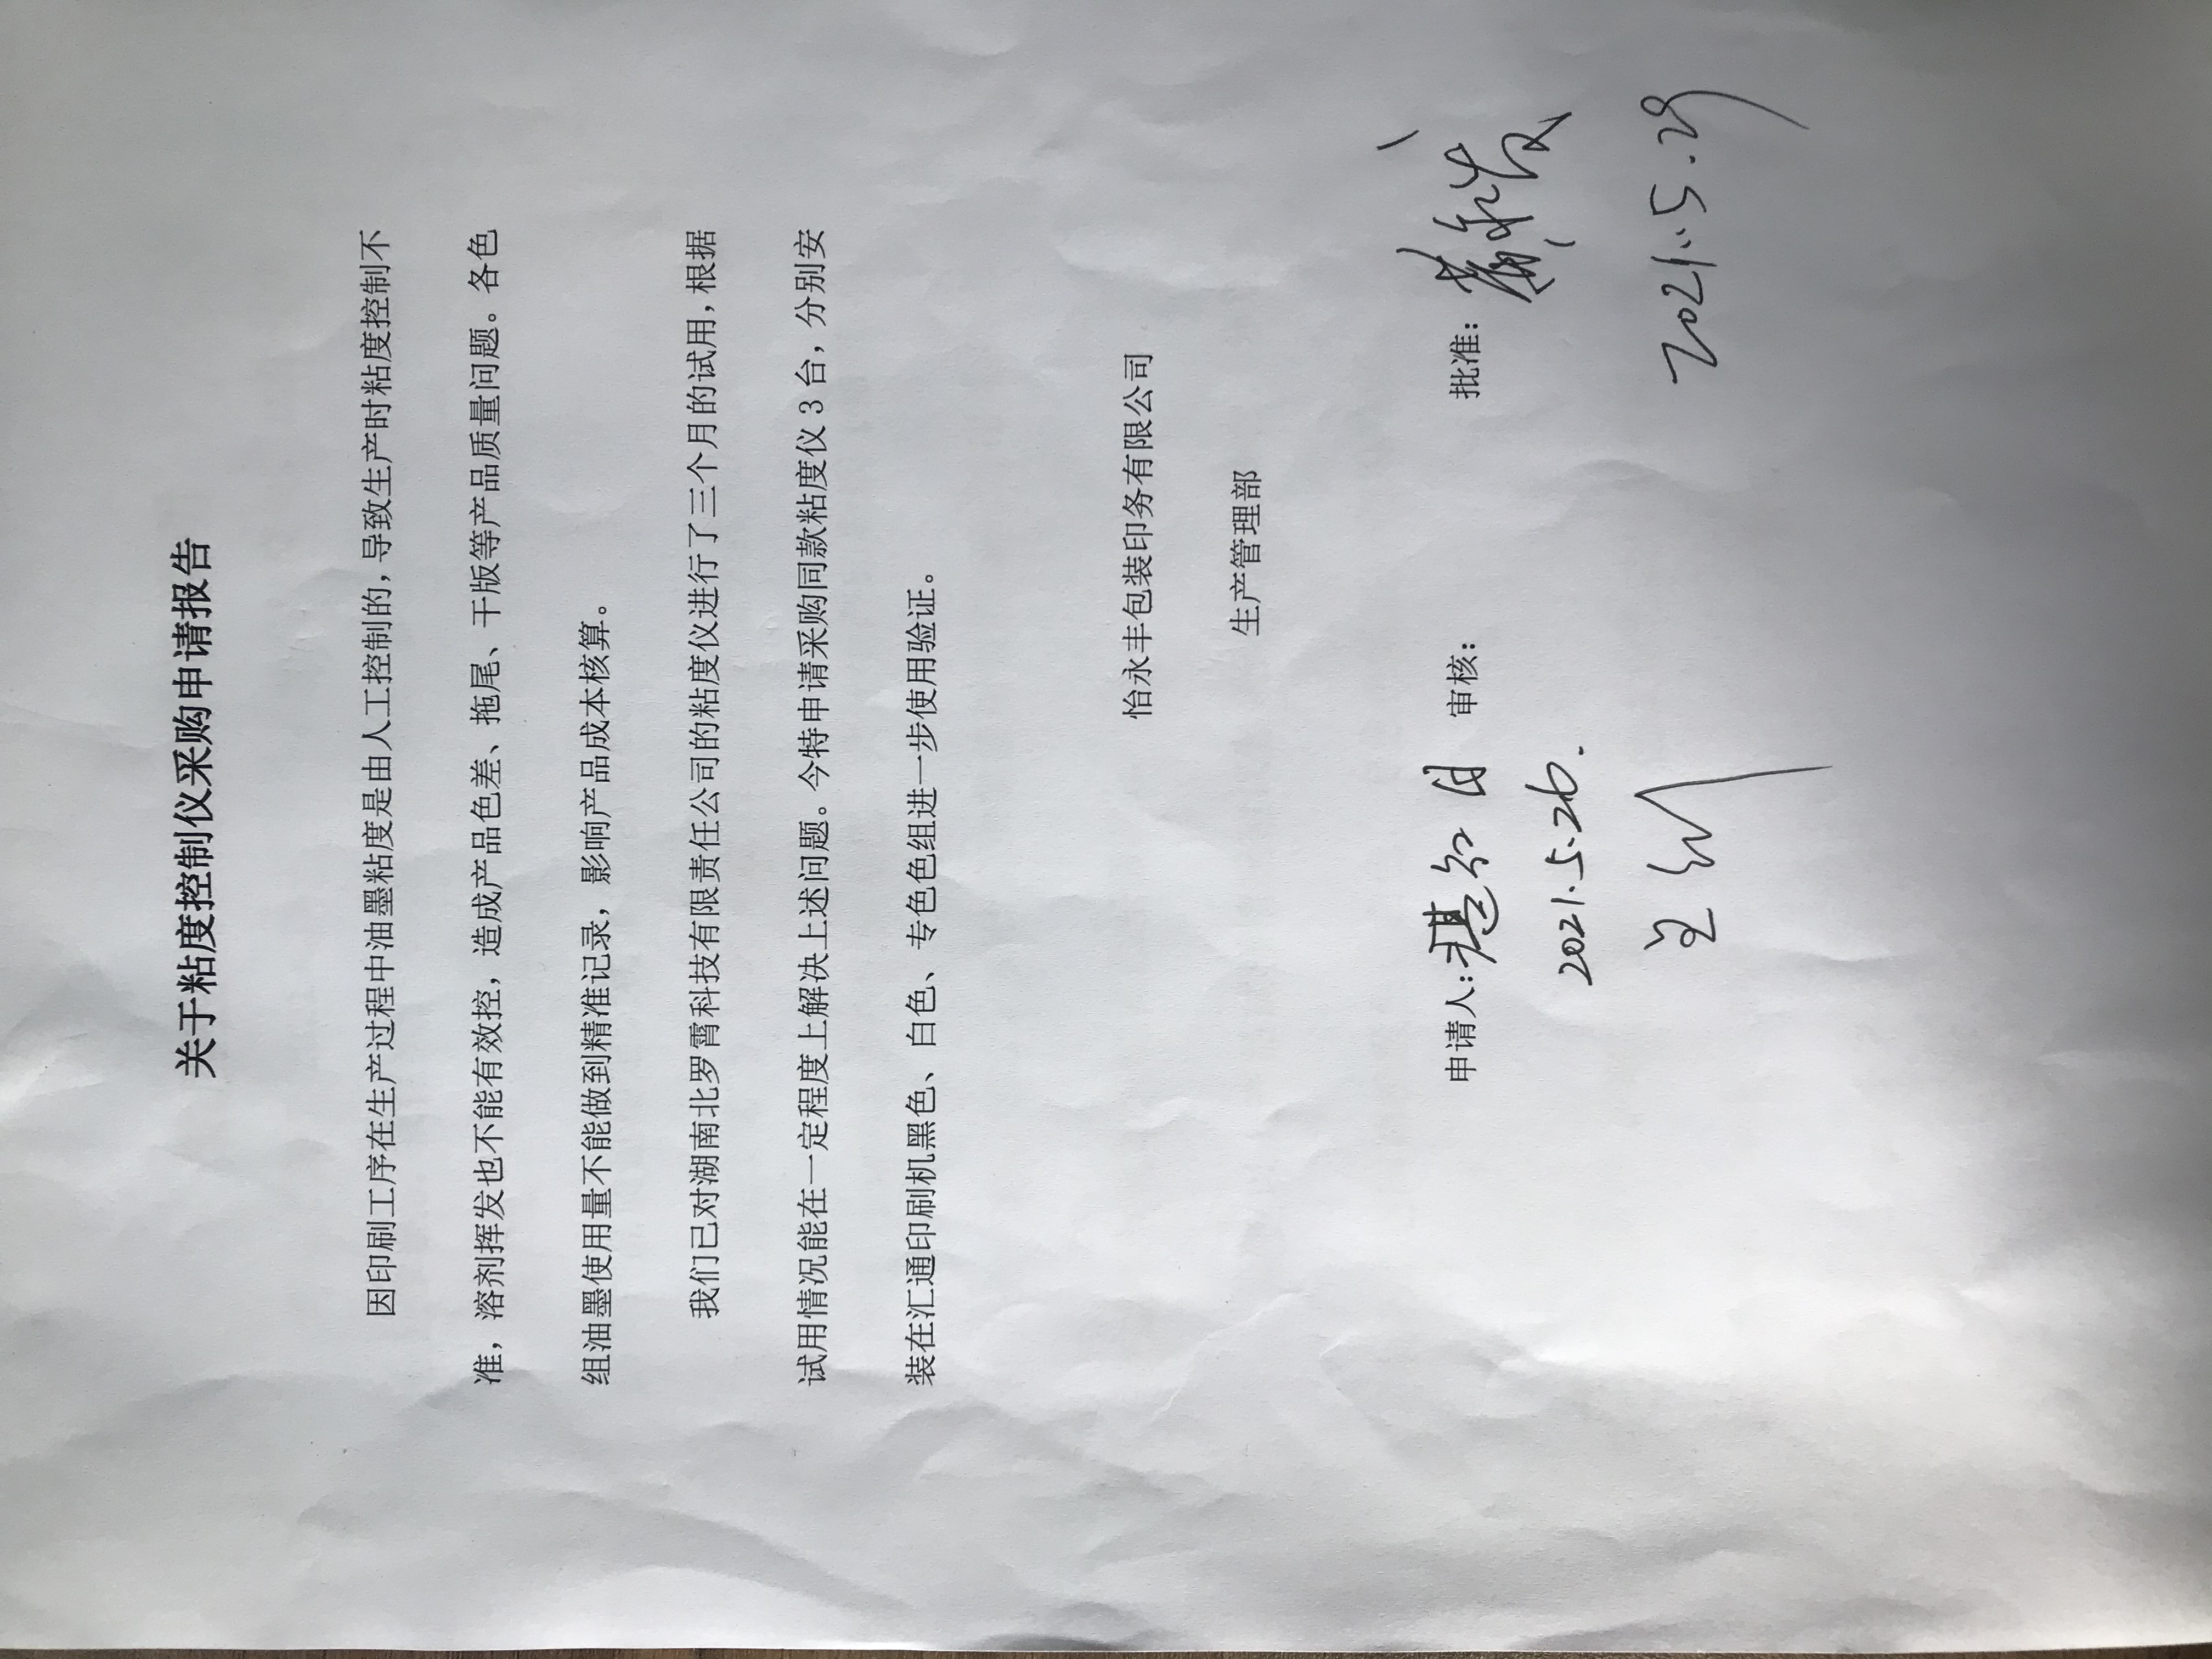 关于粘度控制仪采购申请报告
因印刷工序在生产过程中油墨粘度是由人工控制的，导致生产时粘度控制不
准，溶剂挥发也不能有效控，造成产品色差、拖尾、干版等产品质量问题。各色
组油墨使用量不能做到精准记录，影响产品成本核算。
我们已对湖南北罗霄科技有限责任公司的粘度仪进行了三个月的试用，根据
试用情况能在一定程度上解决上述问题。今特申请采购同款粘度仪 3 台，分别安
装在汇通印刷机黑色、白色、专色色组进一步使用验证。
怡永丰包装印务有限公司
生产管理部
申请人： 审核： 批准：
2021.5.26.
2021.5.29